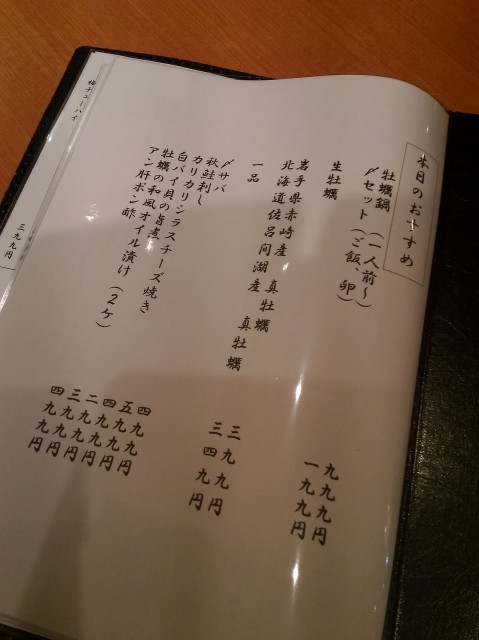 本日のおすすめ
牡蠣鍋(一人前〜) 九九九円
〆セット(ご飯、卵) 一九九円
生牡蠣
岩手県赤崎産 真牡蠣 三九九円
北海道佐呂間湖産 真牡蠣 三四九円
一品
〆サバ 四九九円
秋鮭刺し 五九九円
カリカリシラスチーズ焼き 四九九円
白バイ貝の旨煮 二九九円
牡蠣の和風オイル漬け(2ケ) 三九九円
アン肝ポン酢 四九九円
梅チューハイ 三九九円